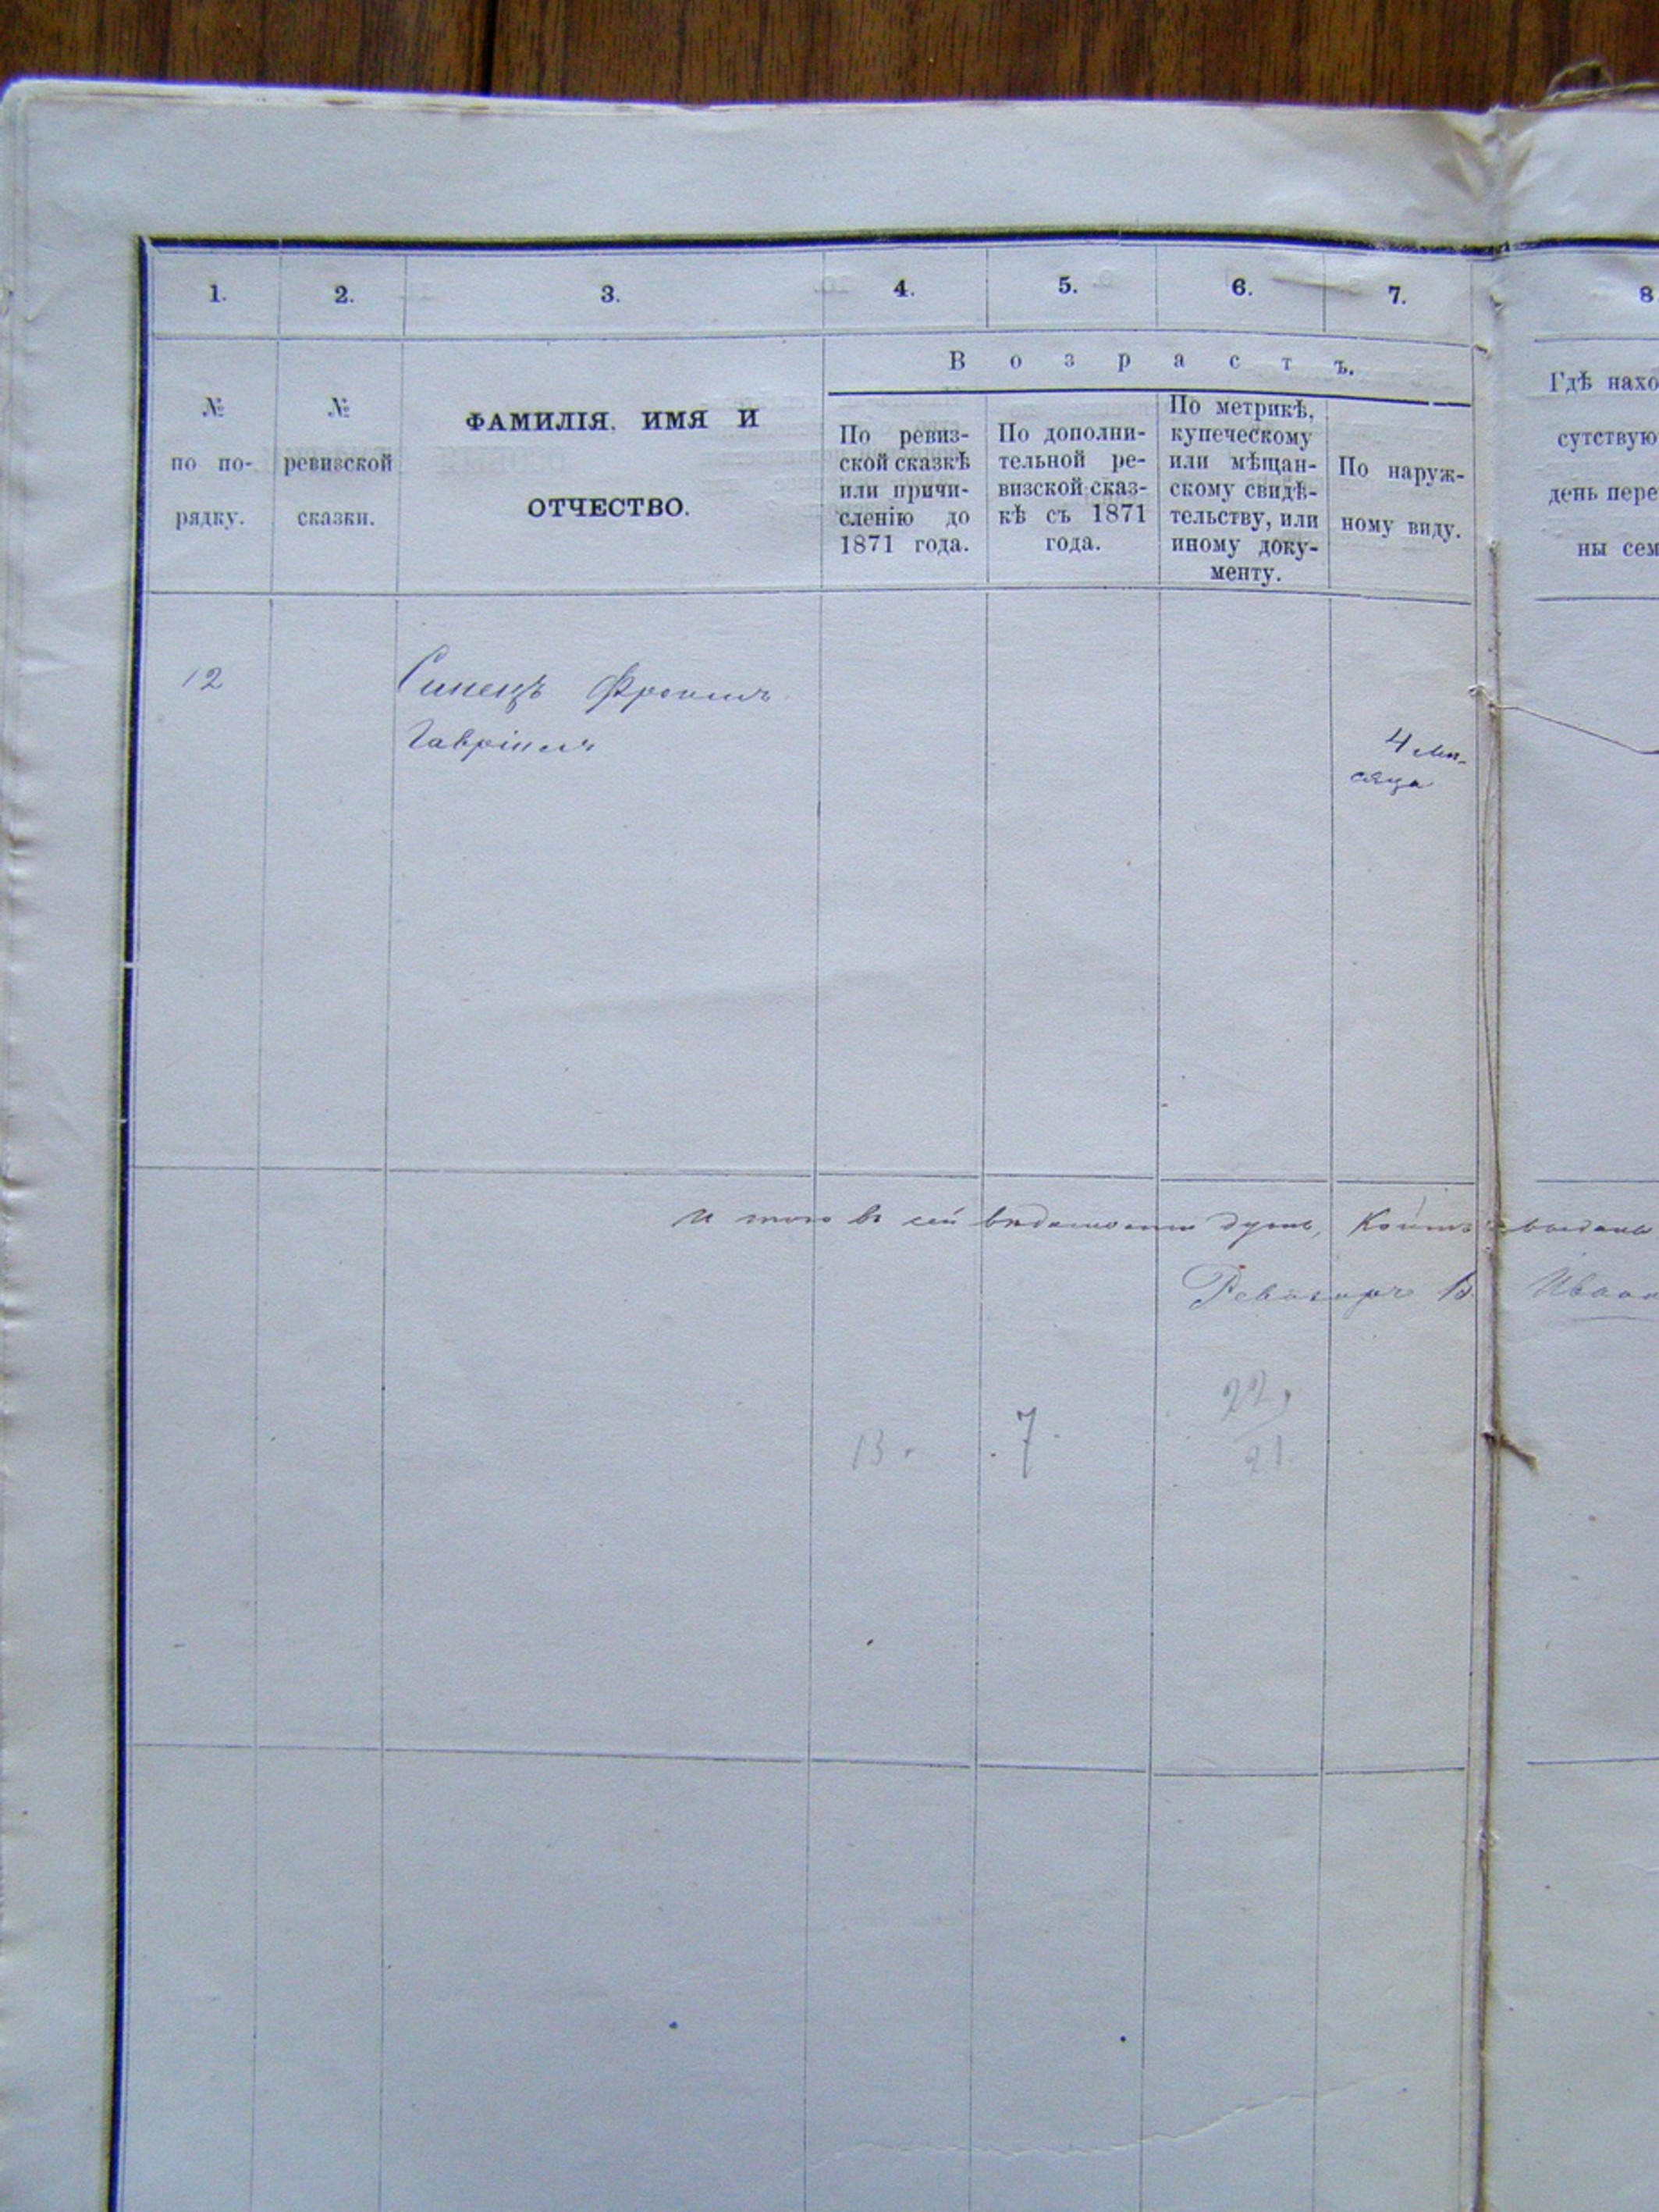 1. 2. 3. 4. 5. 6. 7. 8
Возрастъ.
№ по по-рядку.
№ ревизской сказки.
ФАМИЛІЯ, ИМЯ И
ОТЧЕСТВО.
По ревиз-
ской сказкѣ
или причи-
сленію до
1871 года.
По дополни-
тельной ре-
визской сказ-
кѣ съ 1871
года.
По метрикѣ,
купеческому
или мѣщан-
скому свидѣ-
тельству, или
иному доку-
менту.
По наруж-
ному виду.
Гдѣ нахо
сутствую
день пере
ны сем
12 Синецъ
Гавріилъ
4 мѣ-
сяца
И того въ сей вѣдомости душъ,
Ревизоръ В. Иван
22,
13. 7. 21.